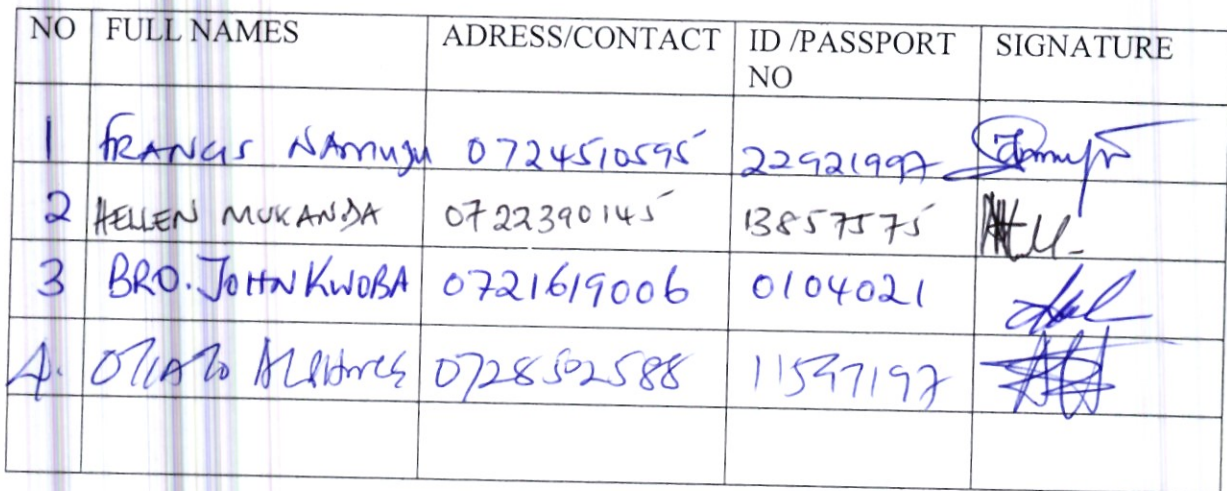 NO FULL NAMES ADRESS/CONTACT ID /PASSPORT NO SIGNATURE
1 FRANCIS NAMUGU 0724510595 22921997
2 HELLEN MUKANDA 0722390145 13857575
3 BRO. JOHN KWOBA 0721619006 0104021
4. 0728502588 11597197